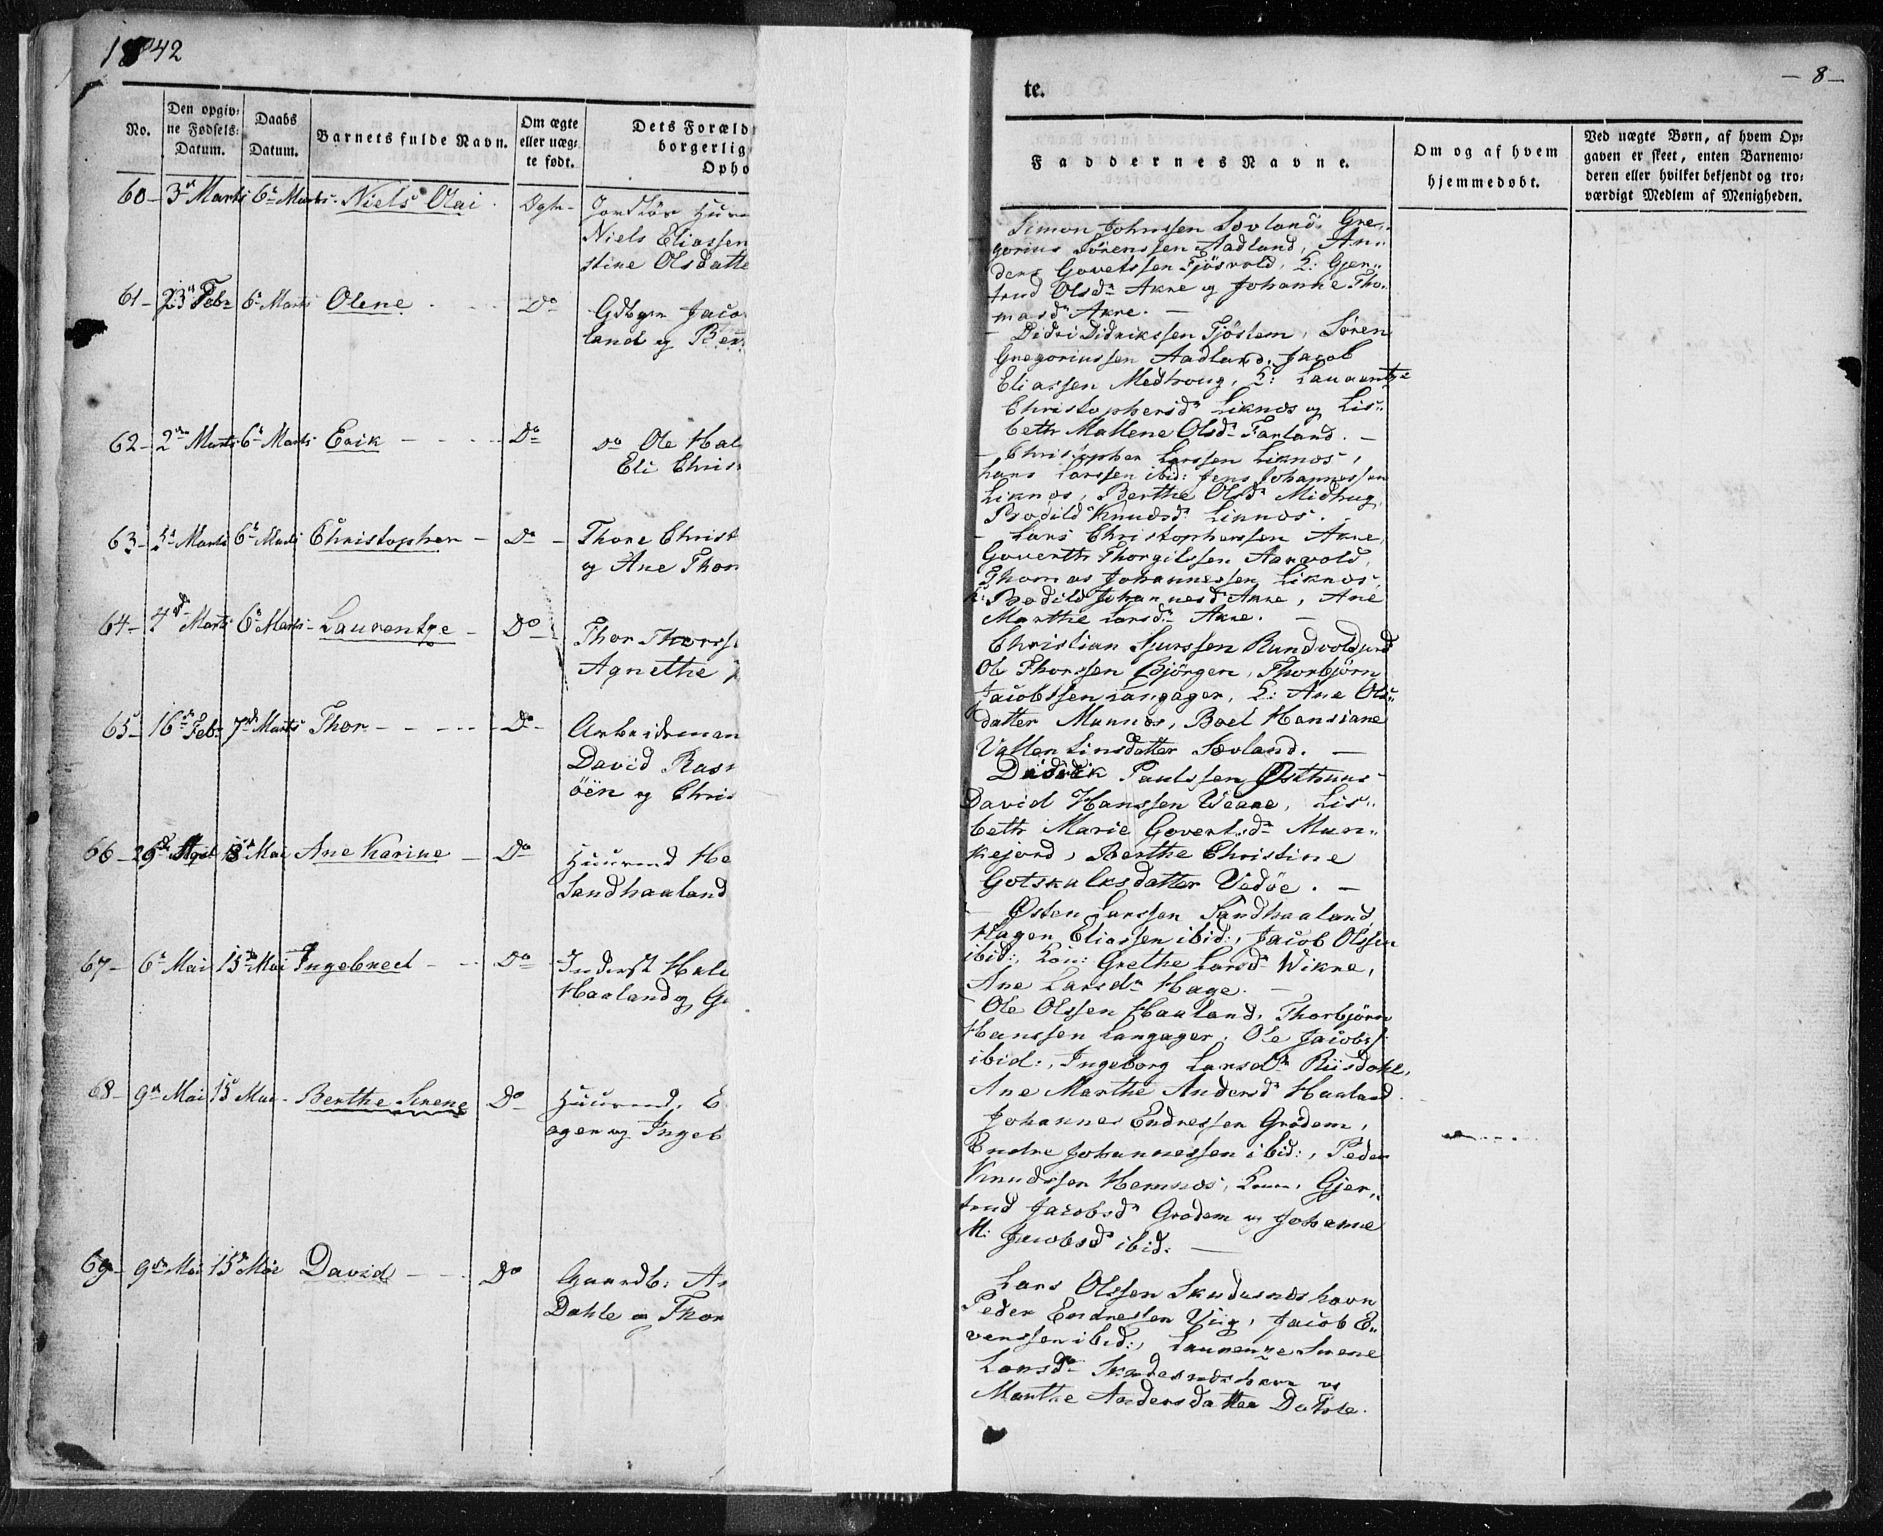 1842
No.
Den opgiv-
ne Fødsels-
Datum.
Daabs
Datum.
Barnets fulde Navn.
Om ægte
eller uæg-
te født.
Dets Foræld
borgerlig
Opho
60 - 3de Marts 6te Marts. Niels Olai. Ægte -
Niels Eliassen
stine Olsdatte
61 - 23de Febr 6te Marts Olene Do
Gdbgr Jaco
land og Ber
62 - 2den Marts 6te Marts Erik - Do
Do Ole Hal
Eli Chris
63 - Marts 6te Marts Christopher - Do -
Thore Christ
og Ane Thor
64 - 4de Marts 6te Marts Laurentze - Do
Thor Thorss
Agnethe
65 - 16de Feb. 7de Marts Thor - Do -
Arbeidsman
David Ras
öen og Chris
66 - 26de April Mai Ane Karine - Do
Huusmd He
Sandhaaland
67 - 6te Mai 15de Mai Ingebrect - Do
Inderst Hal
Haaland og G
68 - 9de Mai 15 Mai - Berthe Serene Do
Huusmd. E
ager og Ingeb
69 - 9de Mai 15de Mai David Do
Gaardb: A
Dahle og Thor
te.
- 8 -
Faddernes Navne.
Om og af hvem
hjemmedøbt.
Ved uægte Børn, af hvem Op-
gaven er skeet, enten Barnemo-
deren eller hvilket bekjendt og tro-
værdigt Medlem af Menigheden.
Simon Johnssen Sovland, Gre-
gorius Sörenssen Aadland, An-
ders Govertssen Fjösvold, K: Gjer-
trud Olsdr Akre og Johanne Tho-
masdr Akre. -
- Didri Didrikssen Tjöstem, Sören
Gregoriussen Aadland, Jacob
Eliassen Medhoug, K: Laurentze
Christophersdr Liknes og Lis-
beth Mallene Olsdr Farland. -
- Christopher Larssen Liknes,
Lars Larssen ibid: Jens Johannessen
Liknes, Berthe Olsdr Midhug
Bodild Knudsdr Liknes. -
- Lars Christophersen Akre,
Goverth Thorgilssen Aarvold,
Thomas Johannessen Liknes
K: Bodild Johannesdr Akre, Ane
Marthe Larsdr Akre. -
Christian Sjurssen Rundvoldsnd
Ole Thorssen Björgen, Thorbjörn
Jacobssen Langager, K: Ane Ols-
datter Munnes, Boel Hansiane
Vallen Linsdatter Sævland. -
Didrik Paulssen Østhuus
David Hanssen Weare, Lis-
beth Marie Govertsdr Mun-
kejord, Berthe Christine
Gotskalksdatter Vedöe. -
- Østen Larssen Sandhaaland
Hagen Eliassen ibid:, Jacob Olssen
ibid:, Kon: Grethe Larsdr Wikre,
Ane Larsdr Hage. -
Ole Olssen Haaland, Thorbjörn
Hanssen Langager, Ole Jacobs
ibid:, Ingeborg Larsdr Riisdahl,
Ane Marthe Andersd Haaland.
Johannes Endressen Grödem,
Endre Johannessen ibid:, Peder
Knudssen Hemnes, Gjer-
trud Jacobsdr Grödem og Johanne
M: Jacobsdr ibid. -
Lars Olssen Skudesneshavn
Peder Endressen Viig, Jacob E-
venssen ibid:, Laurenze Serene
Larsdr Skudesneshavn og
Marthe Andersdatter Dahle.